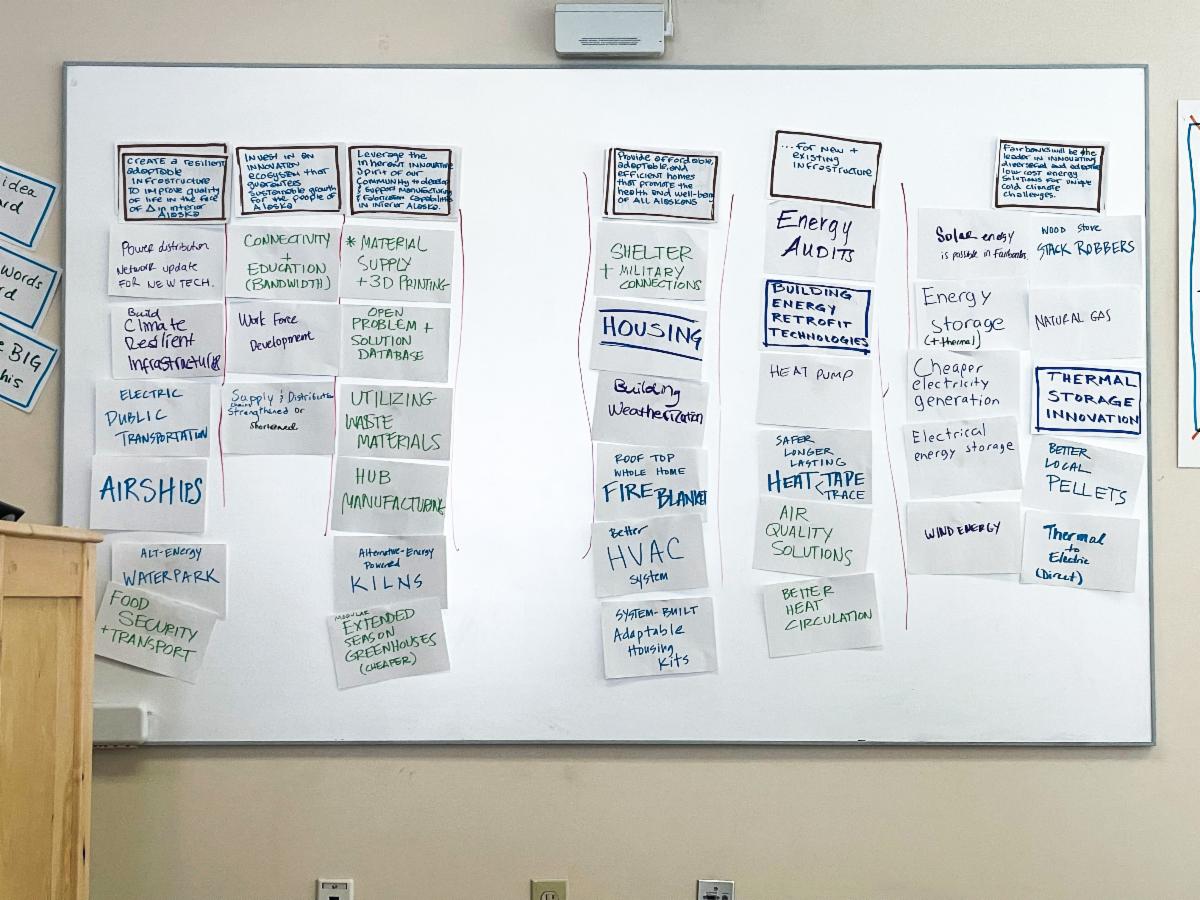 idea
ard
words
rd
e BIG
his
CREATE a resilient
adaptable
INFRASTRUCTURE
TO IMPROVE quality
of life in the face
of Δ in interior
Alaska
Power distribution
Network update
FOR NEW TECH.
Build
Climate
Resilient
Infrastructure
ELECTRIC
PUBLIC
TRANSPORTATION
AIRSHIPS
ALT-ENERGY
WATERPARK
FOOD
SECURITY
+TRANSPORT
Invest in an
INNOVATION
ecosystem that
guarantees
sustainable growth
for the people of
Alaska
CONNECTIVITY
+
EDUCATION
(BANDWIDTH)
Work Force
Development
Supply & Distribution
Chains
Strengthened or
Shortened
Leverage the
inherent innovative
spirit of our
Community to develop
& support manufacturing
& Fabrication capabilities
in Interior Alaska.
* MATERIAL
SUPPLY
+ 3D PRINTING
OPEN
PROBLEM +
SOLUTION
DATABASE
UTILIZING
WASTE
MATERIALS
HUB
MANUFACTURING
Alternative-Energy
Powered
KILNS
MODULAR
EXTENDED
SEASON
GREENHOUSES
(CHEAPER)
Provide affordable,
adaptable, and
efficient homes
that promote the
health and well-being
of ALL ALASKANS
SHELTER
+ MILITARY
CONNECTIONS
HOUSING
Building
Weatherization
ROOF TOP
WHOLE HOME
FIRE BLANKET
Better
HVAC
System
SYSTEM-BUILT
Adaptable
Housing
Kits
...for new +
existing
Infrastructure
Energy
AUDITS
BUILDING
ENERGY
RETROFIT
TECHNOLOGIES
HEAT PUMP
SAFER
LONGER
LASTING
HEAT TAPE
TRACE
AIR
QUALITY
SOLUTIONS
BETTER
HEAT
CIRCULATION
Fairbanks will be the
leader in innovating
diversified and adopting
low cost energy
solutions for unique
cold climate
challenges.
Solar energy
is possible in Fairbanks
Energy
Storage
(+thermal)
Cheaper
electricity
generation
Electrical
energy storage
WIND ENERGY
WOOD Stove
STACK ROBBERS
NATURAL GAS
THERMAL
STORAGE
INNOVATION
BETTER
LOCAL
PELLETS
Thermal
to
Electric
(Direct)